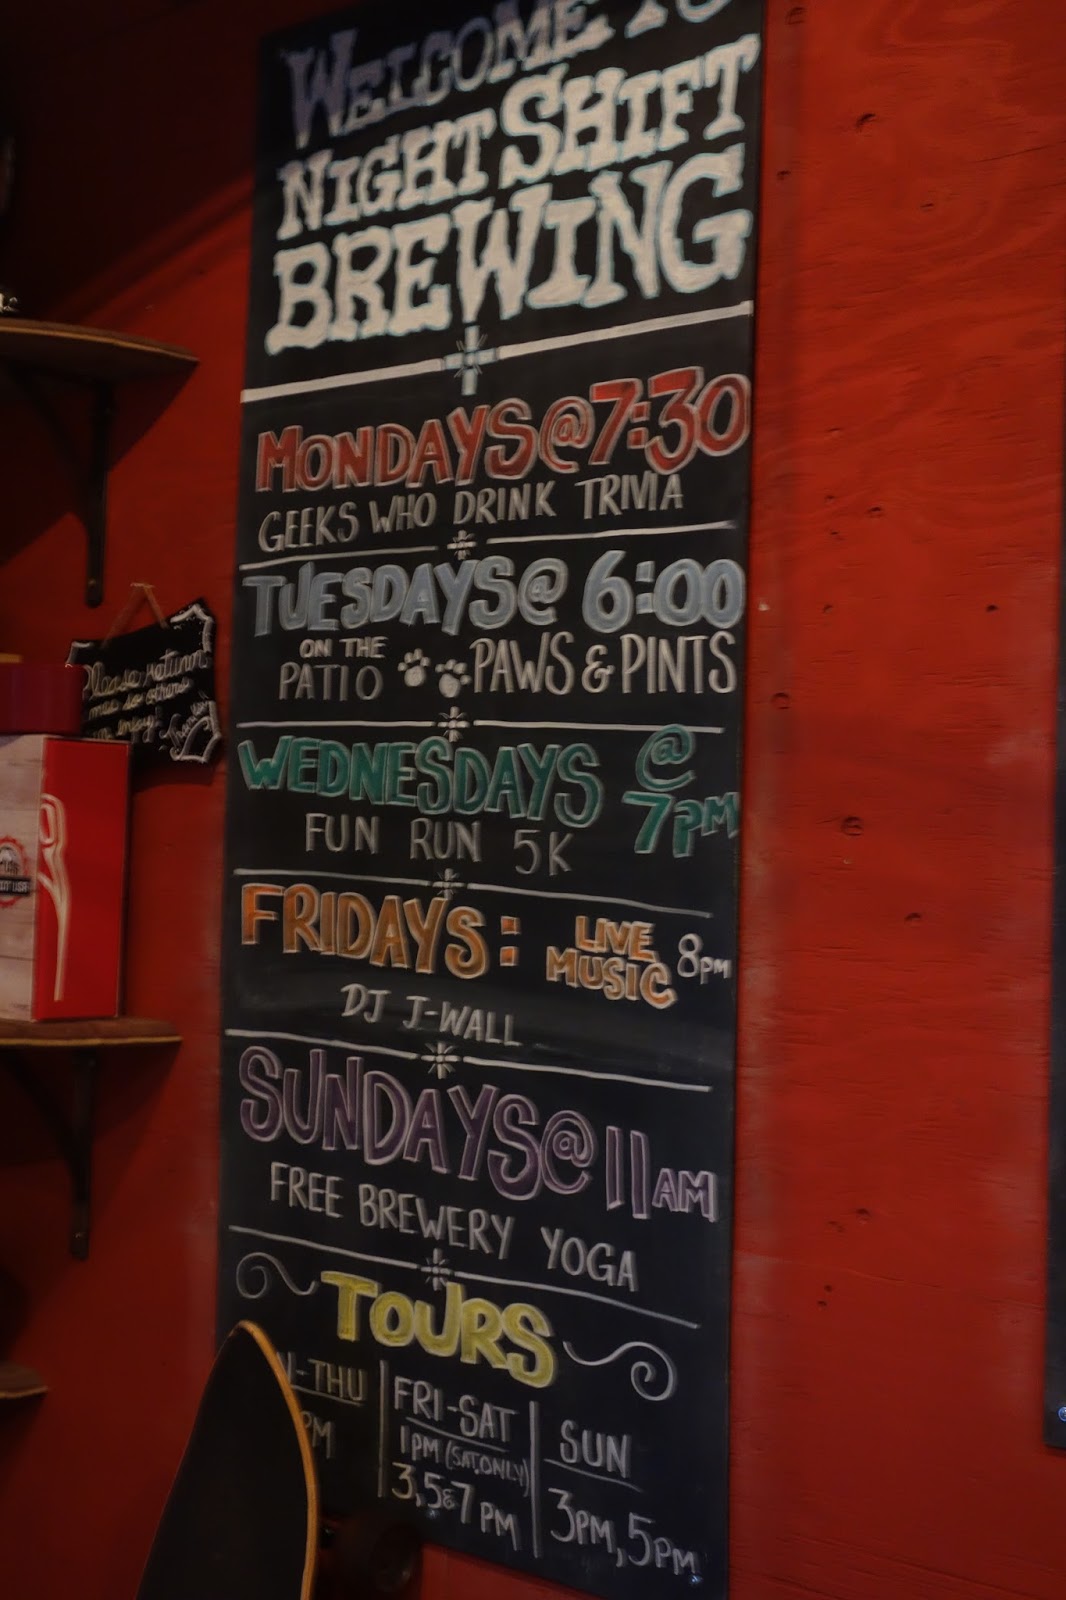 WELCOME TO
NIGHT SHIFT
BREWING
MONDAYS @ 7:30
GEEKS WHO DRINK TRIVIA
TUESDAYS @ 6:00
ON THE
PATIO PAWS & PINTS
WEDNESDAYS @
7PM
FUN RUN 5K
FRIDAYS: LIVE
MUSIC 8PM
DJ J-WALL
SUNDAYS @ 11AM
FREE BREWERY YOGA
TOURS
-THU
PM
FRI-SAT
1PM (SAT.ONLY)
3, 5 & 7 PM
SUN
3PM, 5PM
Please return
me so others
can enjoy!